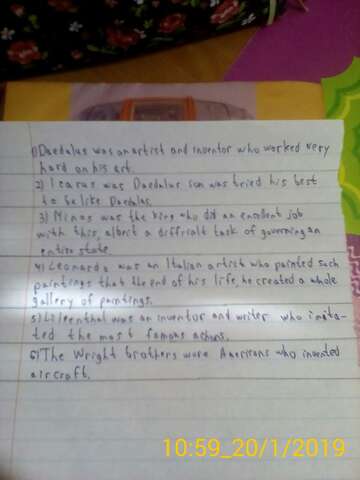 1) Daedalus was an artist and inventor who worked very
hard on his art.
2) Icarus was Daedalus son was tried his best
to be like Daedalus.
3) Minos was the king who did an excellent job
with this, albeit a difficult task of governing an
entire state.
4) Leonardo was an Italian artist who painted such
paintings that the end of his life, he created a whole
gallery of paintings.
5) Lilienthal was an inventor and writer who imita-
ted the most famous
6) The Wright brothers were Americans who invented
aircraft.
10:59_20/1/2019